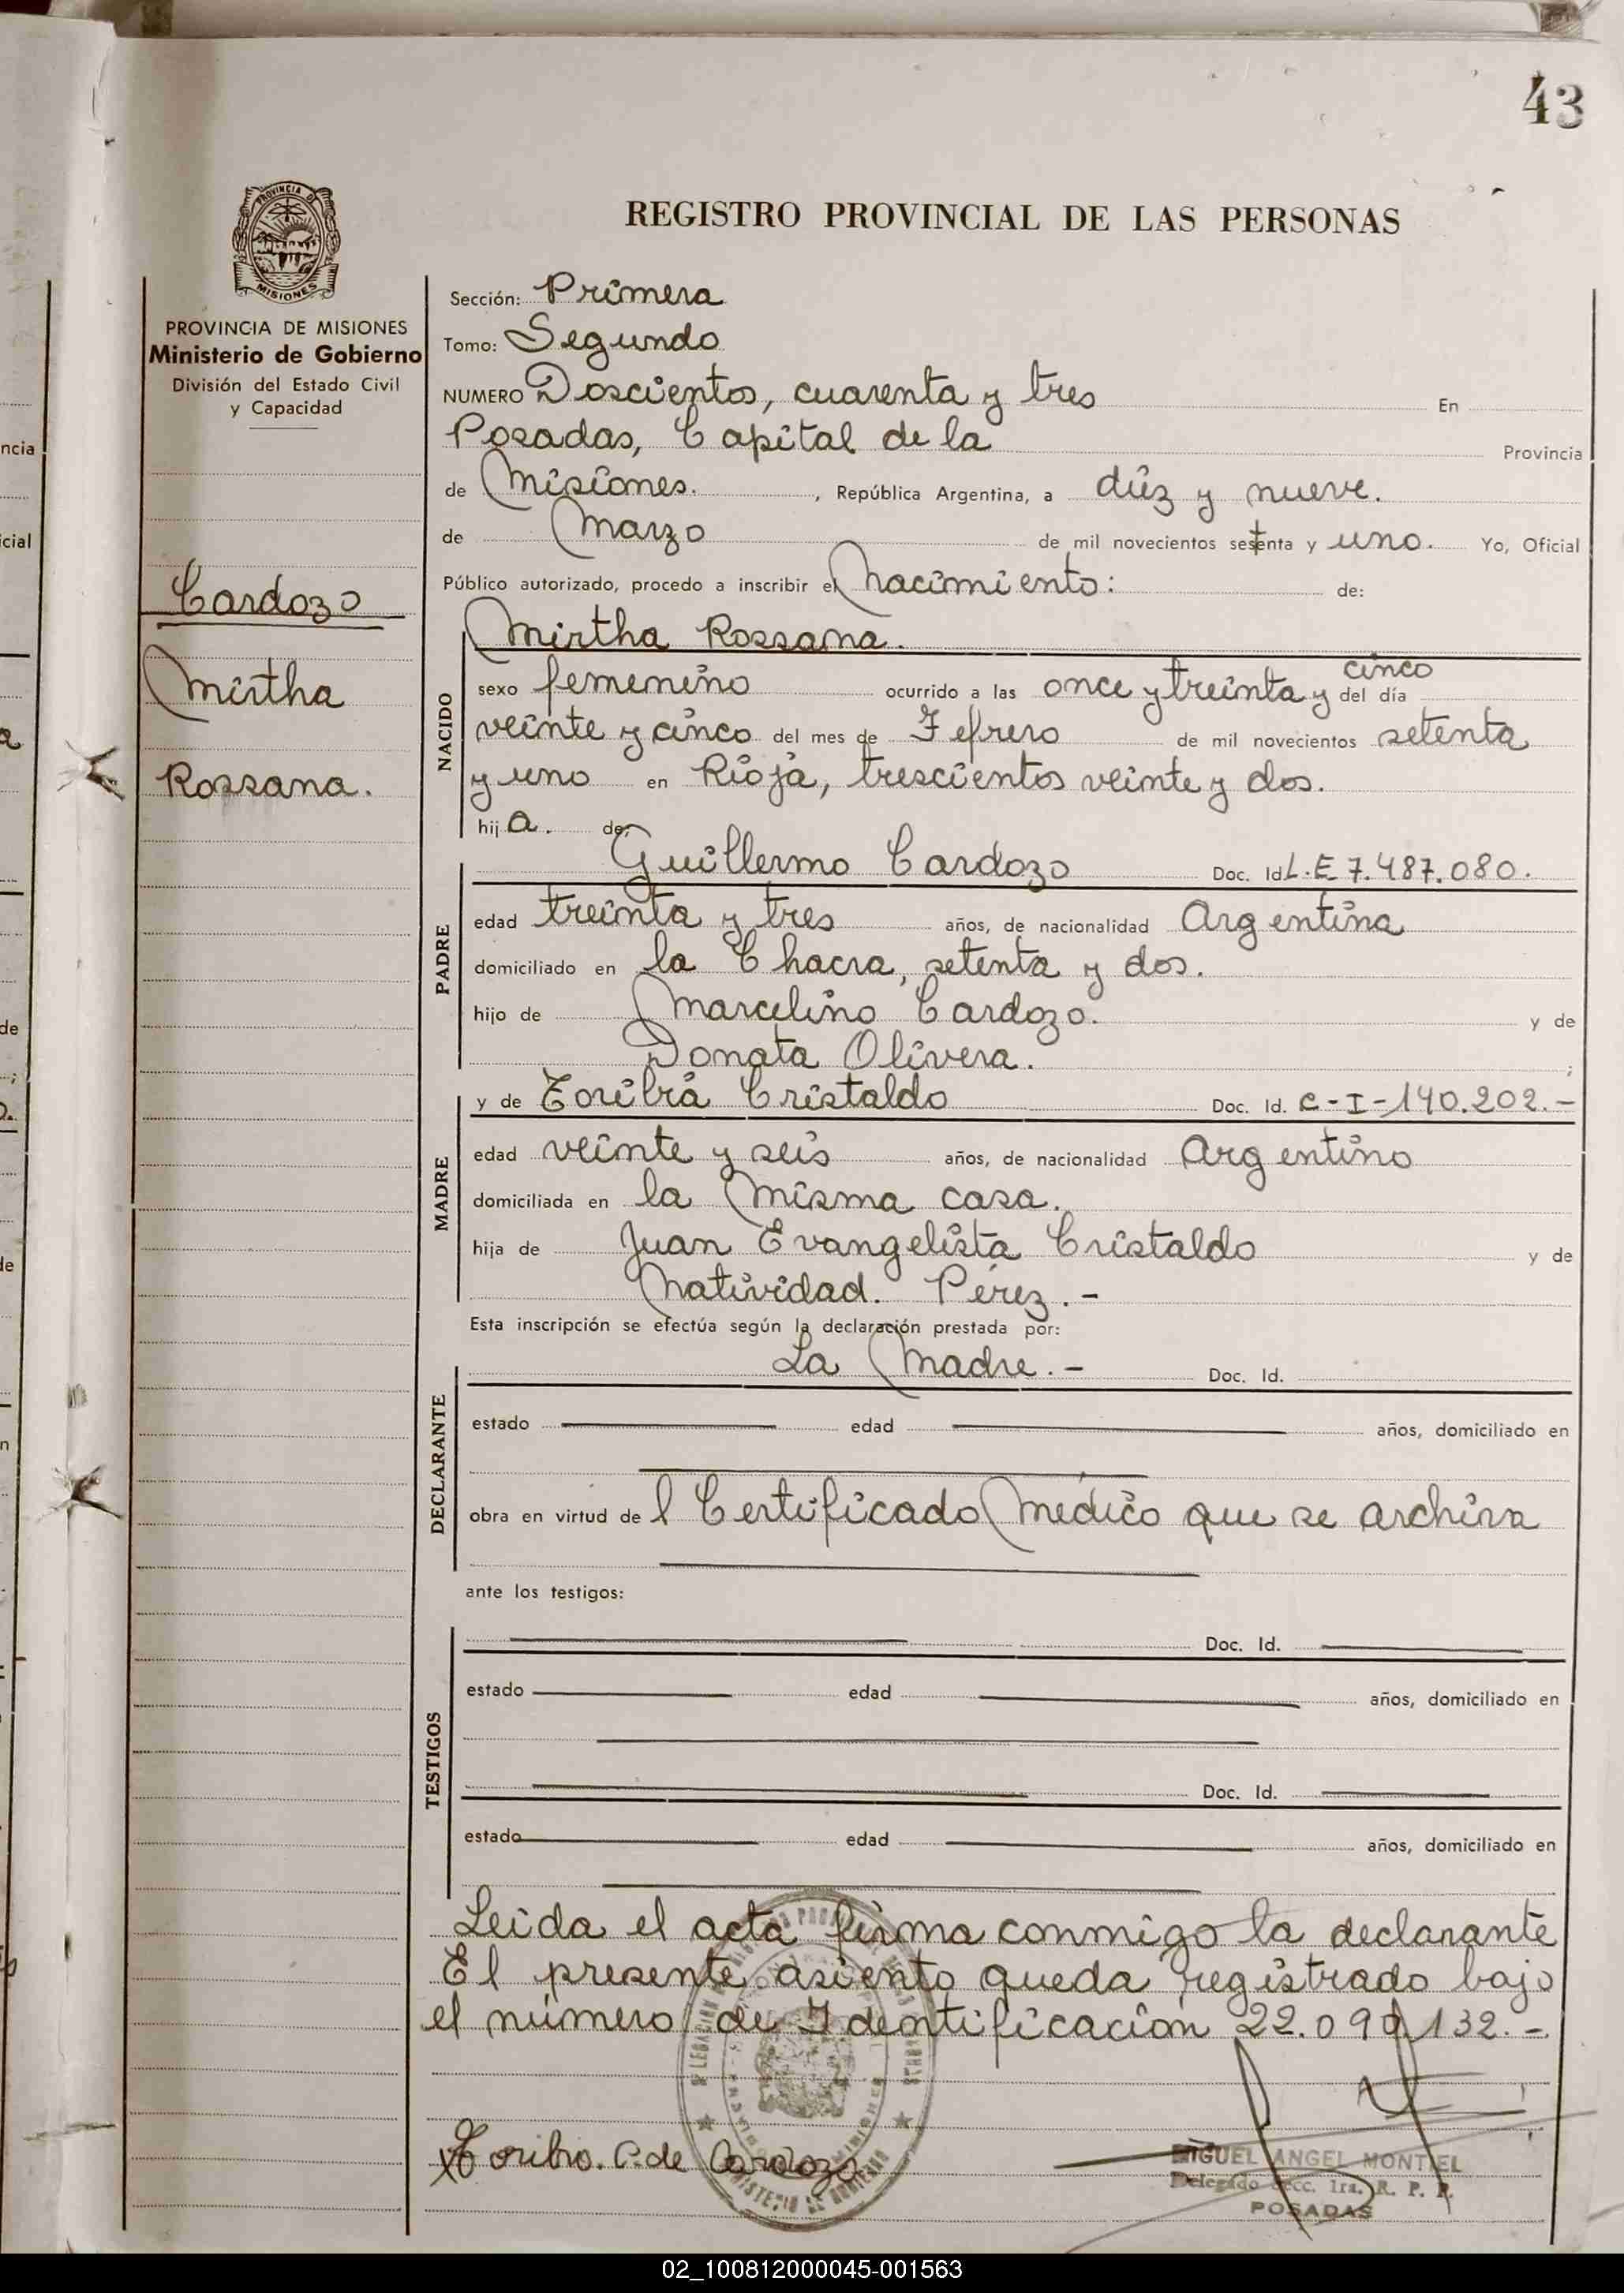 43
PROVINCIA DE
MISIONES
PROVINCIA DE MISIONES
Ministerio de Gobierno
División del Estado Civil
y Capacidad
Cardozo
Mirtha
Rossana.
REGISTRO PROVINCIAL DE LAS PERSONAS
Sección: Primera
Tomo: Segundo
NUMERO Doscientos, cuarenta y tres En
Posadas, Capital de la Provincia
de Misiones. , República Argentina, a diéz y nueve.
de Marzo de mil novecientos setenta y uno. Yo, Oficial
Público autorizado, procedo a inscribir el Nacimiento: de:
Mirtha Rossana.
NACIDO
sexo femenino ocurrido a las once y treinta y cinco del día
veinte y cinco del mes de Febrero de mil novecientos setenta
y uno en Rioja, trescientos veinte y dos.
hij a. de:
PADRE
Guillermo Cardozo Doc. Id. L.E 7.487.080.
edad treinta y tres años, de nacionalidad Argentina
domiciliado en la Chacra, setenta y dos.
hijo de Marcelino Cardozo. y de
Donata Olivera. ;
MADRE
y de Toribia Cristaldo Doc. Id. C-I-140.202.-
edad veinte y seis años, de nacionalidad Argentino
domiciliada en la Misma casa.
hija de Juan Evangelista Cristaldo y de
Natividad. Pérez.-
Esta inscripción se efectúa según la declaración prestada por:
DECLARANTE
La Madre.- Doc. Id.
estado edad años, domiciliado en
obra en virtud de l Certificado Médico que se archiva
ante los testigos:
TESTIGOS
Doc. Id.
estado edad años, domiciliado en
Doc. Id.
estado edad años, domiciliado en
Leida el acta firma conmigo la declarante
El presente asiento queda registrado bajo
el número de Identificación 22.090.132.-
Toribia. C. de Cardozo
MIGUEL ANGEL MONTIEL
Delegado Secc. 1ra. R. P. P.
POSADAS
02_100812000045-001563